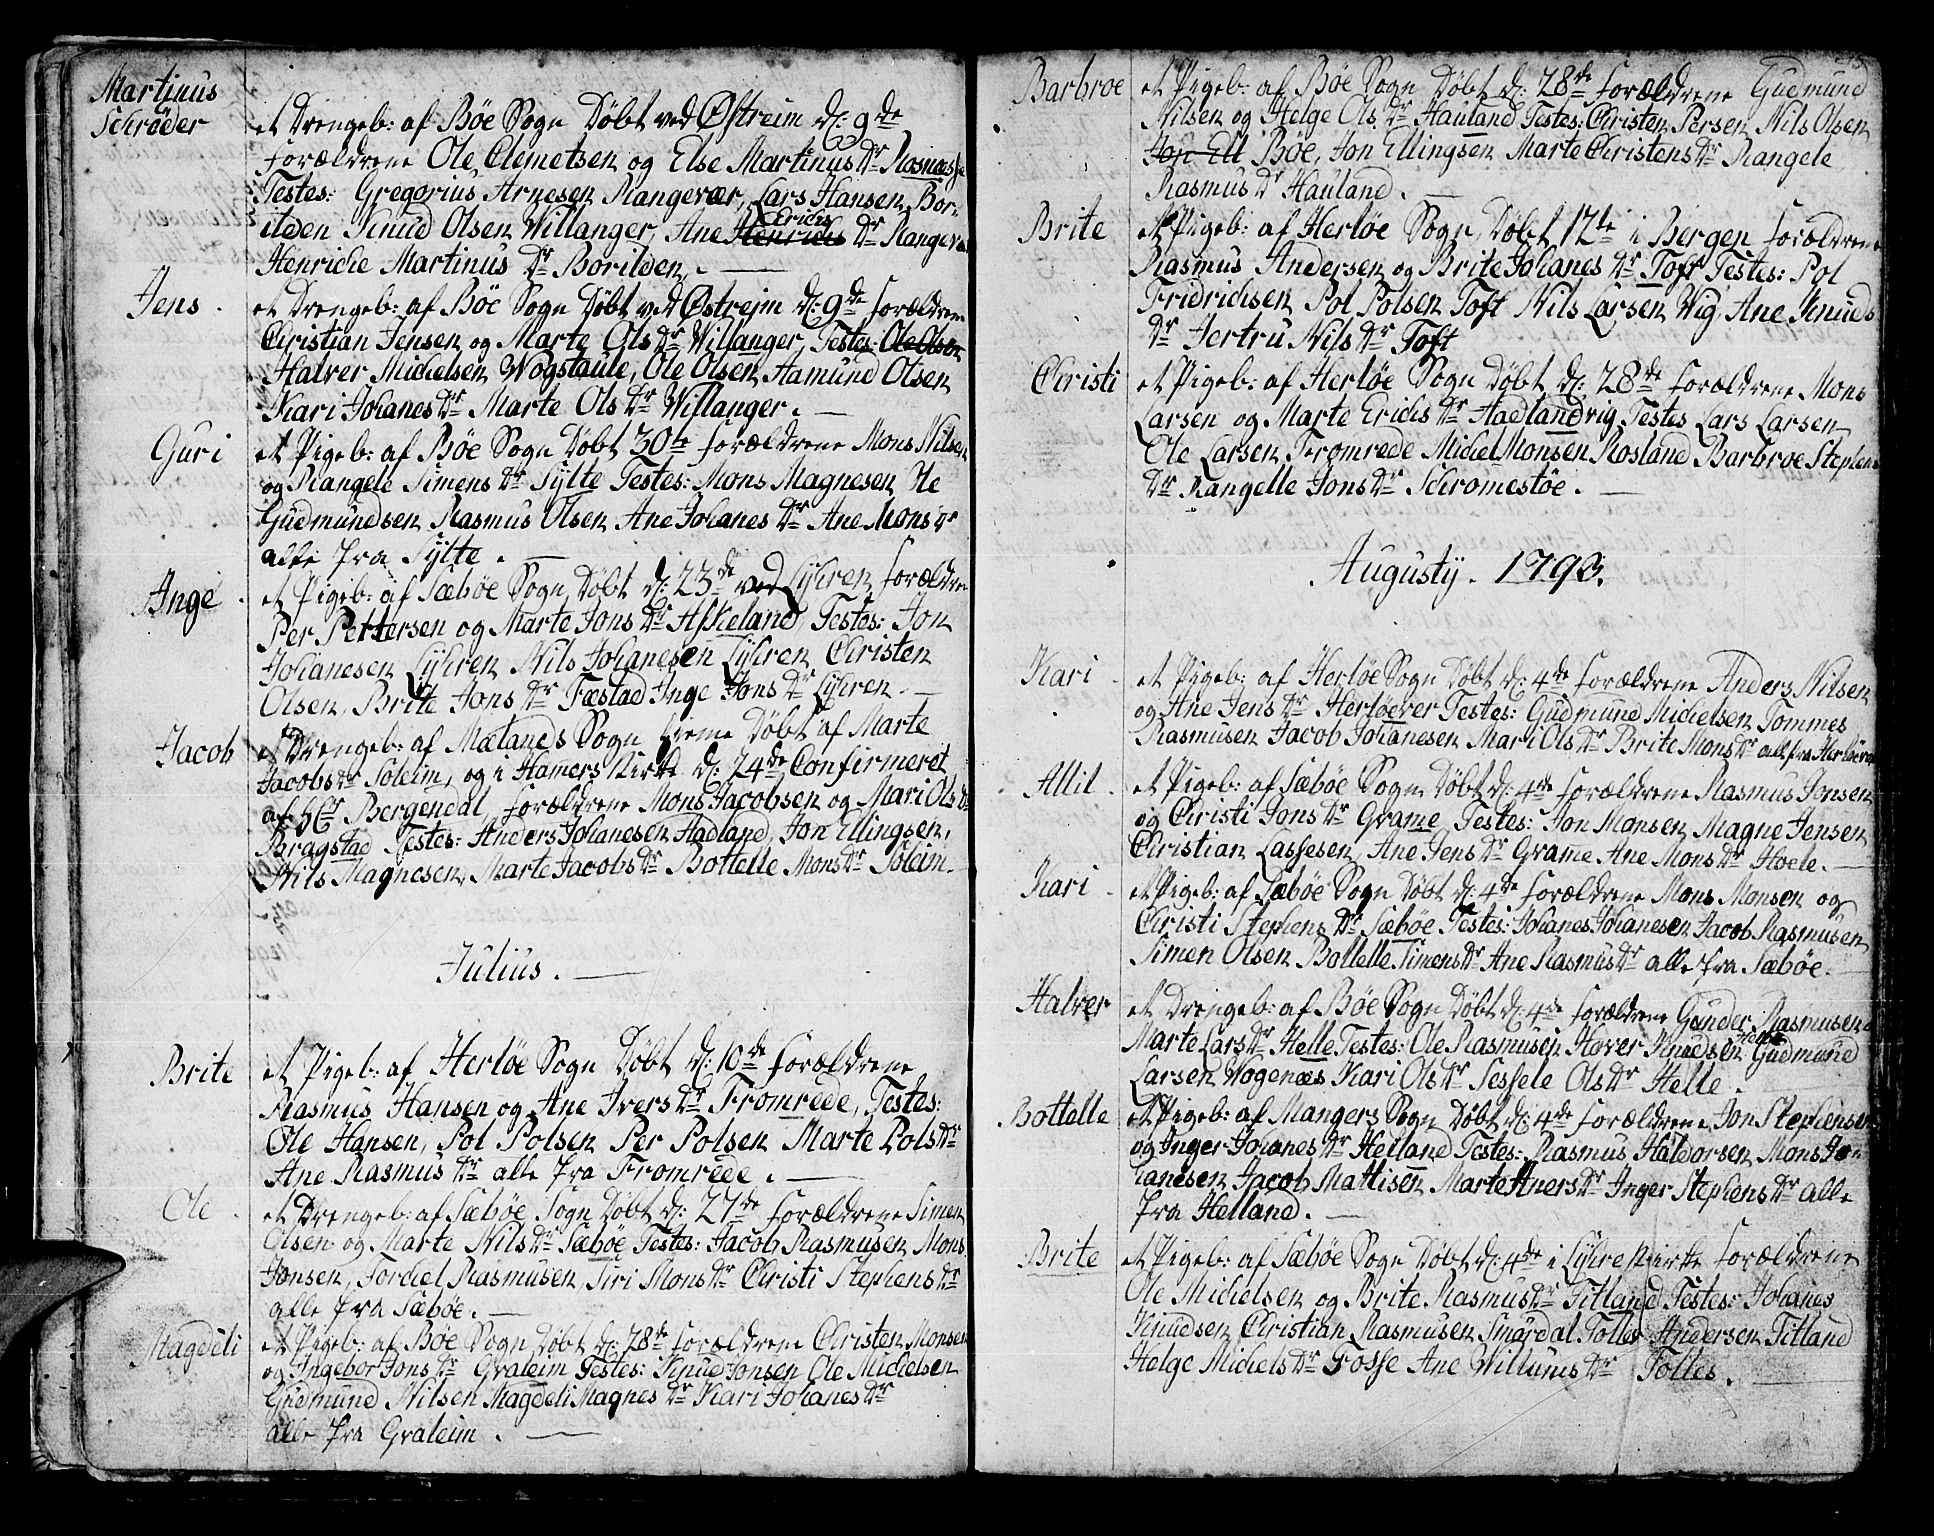 Martinus
Schrøder
et Drengeb: af Bøe Sogn Døbt ved Østreim d: 9de
Forældrene Ole Clemetsen og Else Martinus Dr Rosnæsse
Testes: Gregorius Arnesen Rangevær, Lars Hansen Bor-
ilden Knud Olsen Willanger, Ane Henrichs Erichs Dr Rangevær
Henriche Martinus Dr Borilden.
Jens.
et Drengeb: af Bøe Sogn Døbt ved Østreim d: 9de Forældrene
Christian Jensen og Marte Ols Dr Willanger, Testes: Ole Olsen
Halver Michelsen Wogstaule, Ole Olsen Aamund Olsen
Kari Johanes Dr Marte Ols Dr Willanger.
Guri
et Pigeb: af Bøe Sogn Døbt 30te Forældrene Mons Nilsen
og Rangele Simens Dr Sylte Testes: Mons Magnesen Ole
Gudmundsen Rasmus Olsen Ane Johanes Dr Ane Mons Dr
alle fra Sylte.
Inge.
et Pigeb: af Sæbøe Sogn Døbt d: 23de ved Lyhren Forældrene
Per Pettersen og Marte Jons Dr Askeland, Testes: Jon
Johanesen Lyhren Nils Johanesen Lyhren Christen
Olsen, Brite Jons Dr Fæstad Inge Jons Dr Lyhren.
Jacob
et Drengeb: af Mælands Sogn hieme Døbt af Marte
Jacobs Dr Soleim, og i Hamers Kirke d: 24de Confirmeret
af Hr Bergendal, Forældrene Mons Jacobsen og Mari Ols Dr
Bragstad Testes: Anders Johanesen Aadland, Jon Ellingsen,
Nils Magnesen, Marte Jacobs Dr Bottelle Mons Dr Soleim.
Julius.
Brite
et Pigeb: af Herløe Sogn Døbt d: 10de Forældrene
Rasmus Hansen og Ane Ivers Dr Fromrede, Testes:
Ole Hansen, Pol Polsen Per Polsen Marte Pols Dr
Ane Rasmus Dr alle fra Fromrede.
Ole.
et Drengeb: af Sæbøe Sogn Døbt d: 27de Forældrene Simen
Olsen og Marte Nils Dr Sæbøe Testes: Jacob Rasmusen Mons
Jonsen, Torchel Rasmusen, Siri Mons Dr Christi Stephens Dr
alle fra Sæbøe.
Magdeli
et Pigeb: af Bøe Sogn Døbt d: 28de Forældrene Christen Monsen
og Ingebor Jons Dr Graleim Testes: Knud Jonsen Ole Michelsen
Gudmund Nilsen Magdeli Magnes Dr Kari Johanes Dr
alle fra Graleim.
Barbroe
et Pigeb: af Bøe Sogn Døbt d: 28de Forældrene Gudmund
Nilsen og Helge Ols Dr Hauland Testes: Christen Persen Nils Olsen
Jon Ell Bøe, Jon Ellingsen Marte Christens Dr Rangele
Rasmus Dr Hauland.
Brite
et Pigeb: af Herløe Sogn, Døbt 12te i Bergen Forældrene
Rasmus Andersen og Brite Johanes Dr Toft Testes: Pol
Fridrichsen Pol Polsen Toft Nils Larsen Wig Ane Knuds
Dr Jertru Nils Dr Toft
Christi
et Pigeb: af Herløe Sogn Døbt d: 28de Forældrene Mons
Larsen og Marte Erichs Dr Aadlandvig Testes Lars Larsen
Ole Larsen Fromrede Michel Monsen Rosland Barbroe Stephens
Dr Rangelle Jons Dr Schromestøe.
Augustij. 1793.
Kari.
et Pigeb: af Herløe Sogn Døbt d: 4de Forældrene Anders Nilsen
og Ane Jens Dr Herløever Testes: Gudmund Michelsen Tommes
Rasmusen Jacob Johanesen Mari Ols Dr Brite Mons Dr all fra Herløever
Allil.
et Pigeb: af Sæbøe Sogn Døbt d: 4de Forældrene Rasmus Jonsen
og Christi Jons Dr Grame Testes: Jon Monsen Magne Jensen
Christian Lassesen, Ane Jens Dr Grame Ane Mons Dr Hoele.
Kari.
et Pigeb: af Sæbøe Sogn Døbt d: 4de Forældrene Mons Monsen og
Christi Stephens Dr Sæbøe Testes: Johanes Johanesen Jacob Rasmusen
Simen Olsen Bottelle Simens Dr Ane Rasmus Dr alle fra Sæbøe.
Halver
et Drengeb: af Bøe Sogn Døbt d: 4de Forældrene Gunder Rasmusen
Marte Lars Dr Helle Testes: Ole Rasmusen Haver Knudsen Helle Gudmund
Larsen Vogenæs Kari Ols Dr Sessele Ols Dr Helle.
Bottelle
et Pigeb: af Mangers Sogn Døbt d: 4de Forældrene Jon Stephensen
og Inger Johanes Dr Helland Testes: Rasmus Haldorsen Mons Jo-
hanesen Jacob Mattisen Marte Iners Dr Inger Stephens Dr alle
fra Helland.
Brite
et Pigeb: af Sæbøe Sogn Døbt d: 4de i Lyhre Kirke Forældrene
Ole Michelsen og Brite Rasmus Dr Titland Testes: Johanes
Knudsen Christian Rasmusen Smørdal Tolles Andersen Titland
Helge Michels Dr Fosse Ane Willums Dr Tolles.